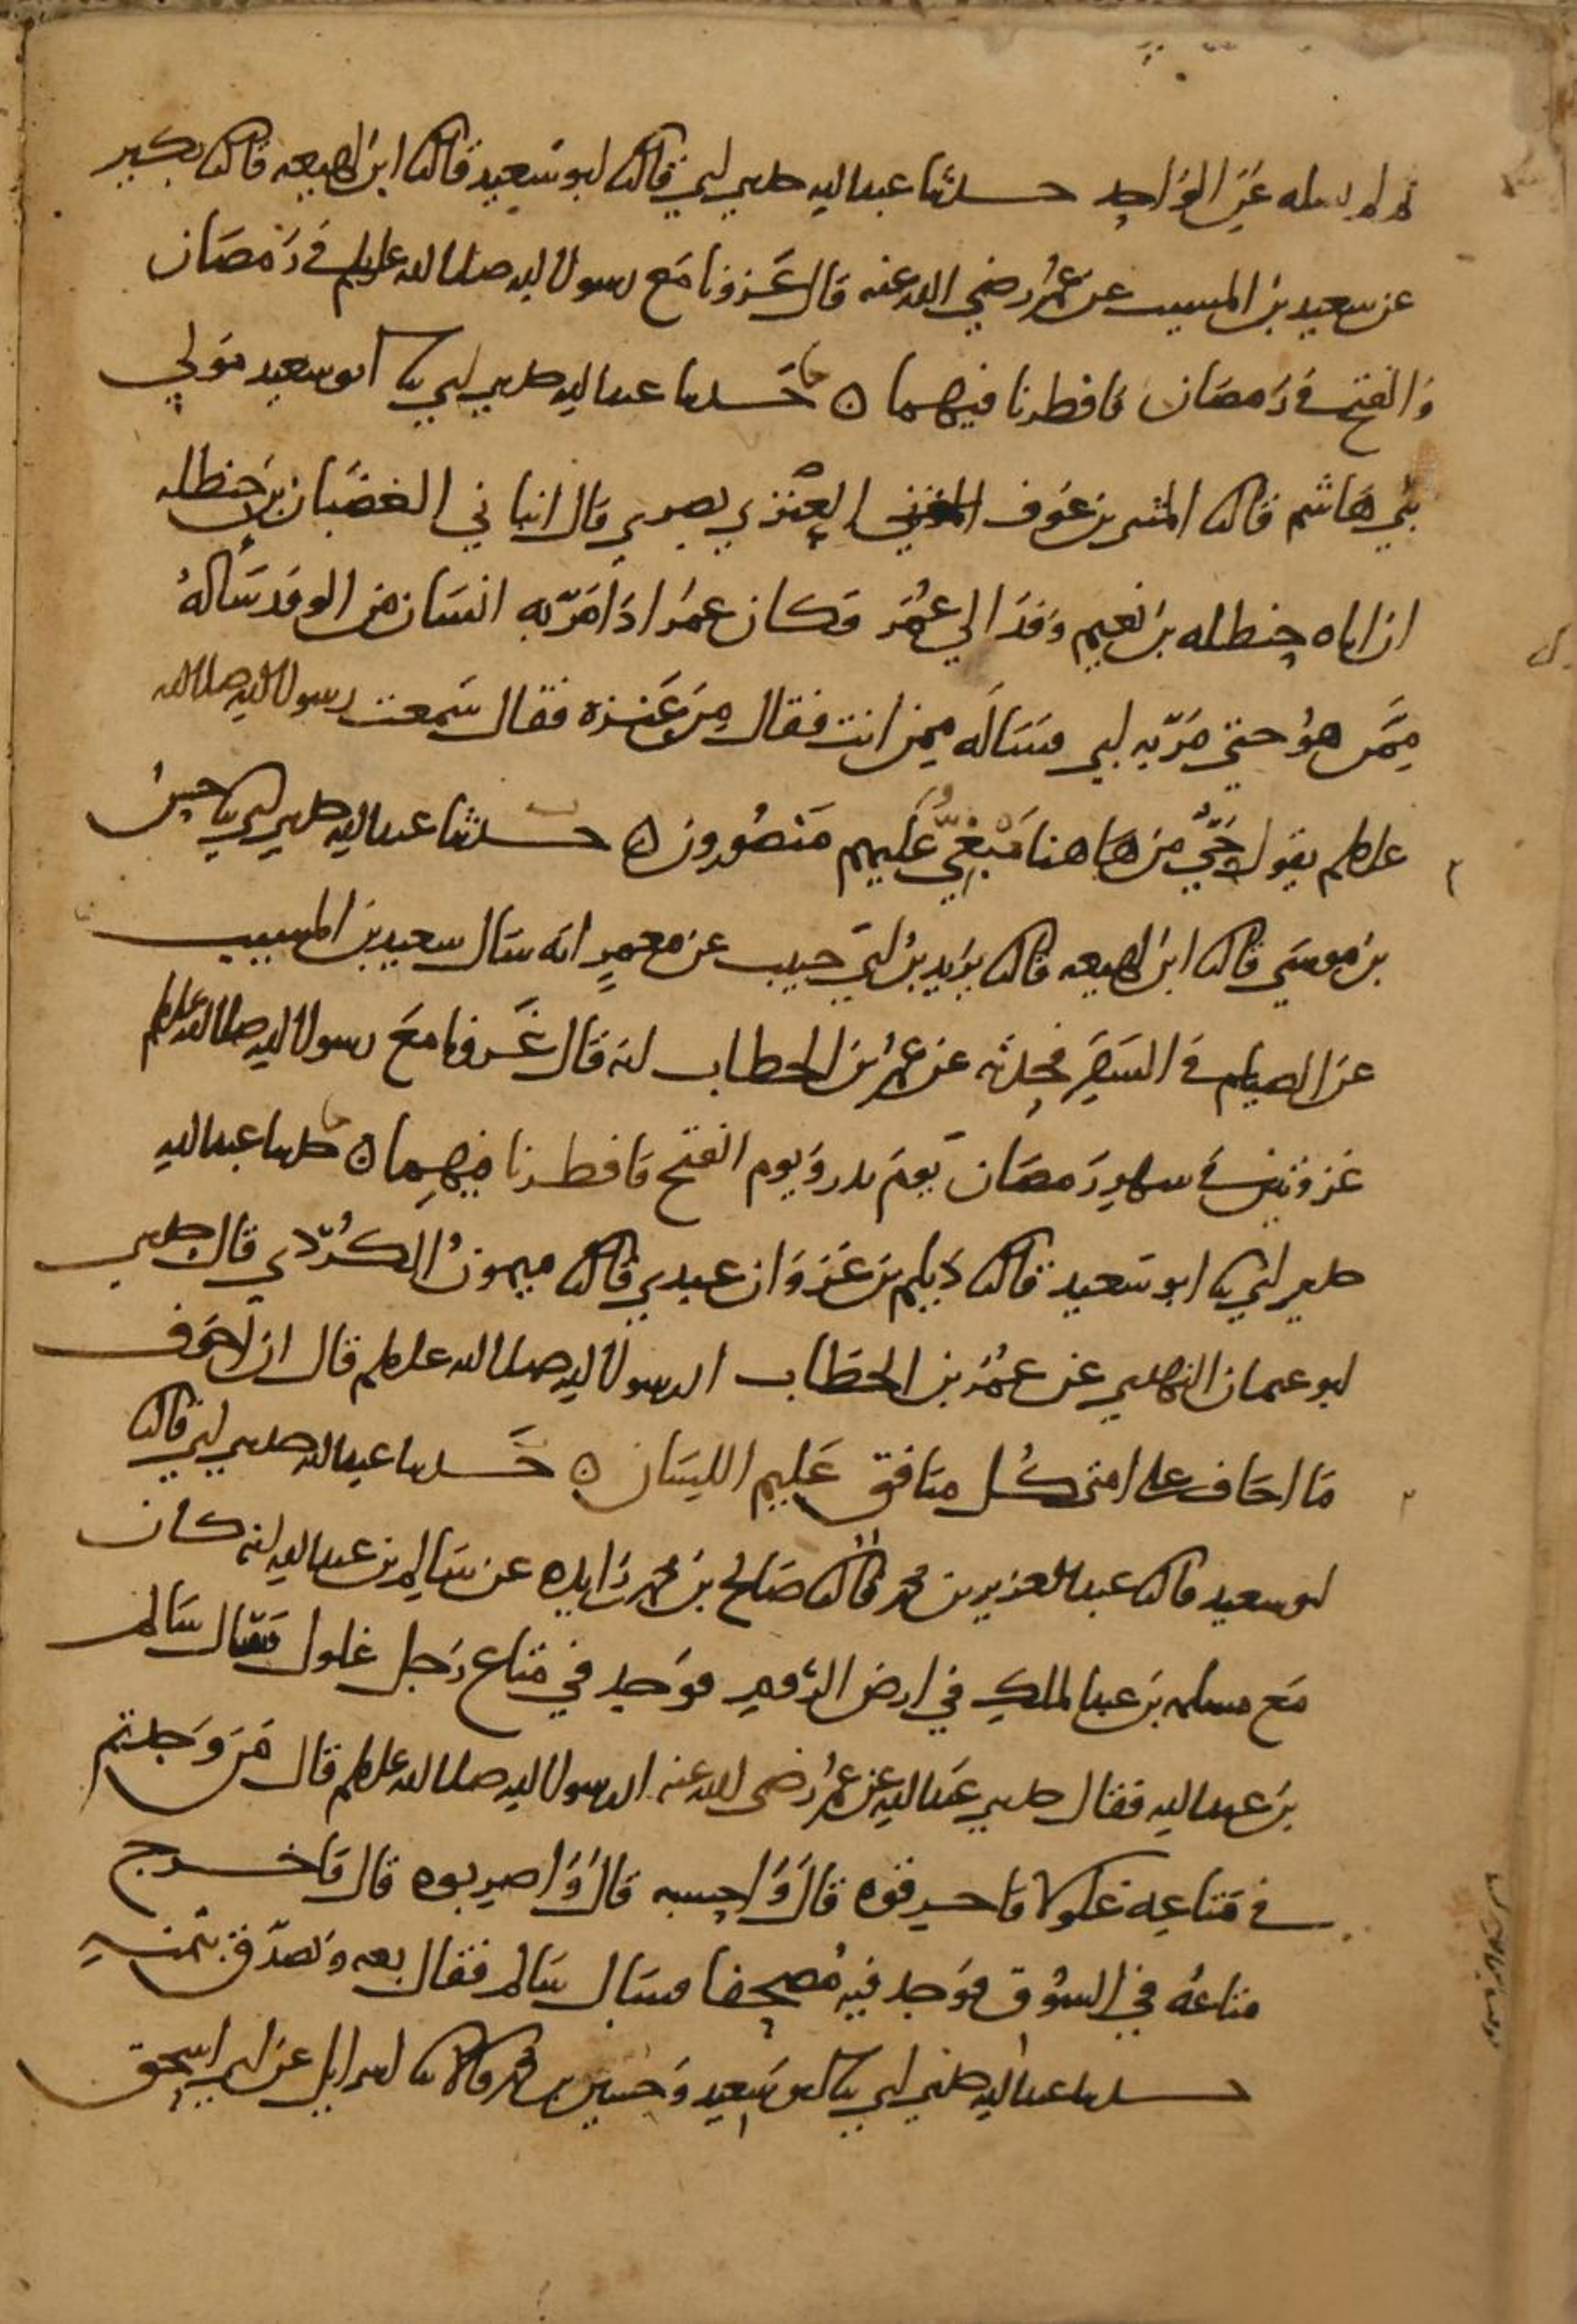 ولم يسله عن الواحد حدثنا عبدالله حدثني ابي قال ثنا ابو سعيد قال ثنا ابن لهيعه قال ثنا بكير
عن سعيد بن المسيب عن عمر رضي الله عنه قال غزونا مع رسول الله صلى الله عليه وسلم في رَمضان
وَالفتح في رَمضان فافطرنا فيهما ه حَدثنا عبدالله حدثني ابي ثنا ابو سعيد مَولي
بني هَاشم قال ثنا المثنى بن عَوف العنزي بصري قال انباني الغضبان بن حنظله
ان اباه حنظله بن نعيم وَفدَ الي عُمَر فكان عمرُ اذا مَرّ به انسَان من الوفد سَألهُ
مِمَّن هوُ حتي مَرّ به ابي فسَاله ممن انت فقال مِن عَنزه فقال سَمعت رسول الله صلى الله
عليه وسلم يقول حَيٌّ من هاهنا مَبْغِيٌّ عليهم مَنصُورون ه حدثنا عبدالله حدثني ابي ثنا حسنُ
بن موسَي قال ثنا ابن لهيعه قال ثنا يزيد بنُ ابي حبيب عن معمرٍ انه سَال سعيد بن المسيب
عن الصيام في السَفَرِ فحدثه عن عمرُ بن الخطاب انه قال غَزونا مَعَ رسول الله صلى الله عليه وسلم
غزوتين في شهرِ رَمضان يَومَ بدر وَيوم الفتح فافطرنا فيهِما ه حدثنا عبدالله
حدثني ابي ثنا ابو سَعيد قال ثنا دَيلم بن غَزوَان عبدي قال ثنا ميمونُ الكُردّي قال حدثني
ابو عثمان النهدي عن عمُرَ بن الخطاب ان رسول الله صلى الله عليه وسلم قال ان اخوَف
مَا اخاف على امتي كُل منافق عَليم اللسَان ه حَدثنا عبدالله حدثني ابي قال ثنا
ابو سعيد قال ثنا عبدالعزيز بن محمد قال ثنا صَالح بن محمد بن زَايده عن سَالم بن عبدالله انه كان
مَع مسلمه بن عبدالملك في ارض الرُومِ فوَجد في متاع رَجل غلول فسَال سَالم
بن عبدالله فقال حدثني عَبدالله عن عمرُ رضي الله عنه ان رسول الله صلى الله عليه وسلم قال مَن وَجدتم
في مَتاعِه غلولا فاحرقوه قال وَاحسبه قال وَاضربوه قال فاخرج
متاعهُ في السُوق فوَجد فيه مُصحفا فسَال سَالم فقال بعه وَتصدّق بثمنه
حدثنا عبدالله حدثني ابي ثنا ابو سَعيد وَحسين بن محمد قالا ثنا اسرايل عن ابي اسحق